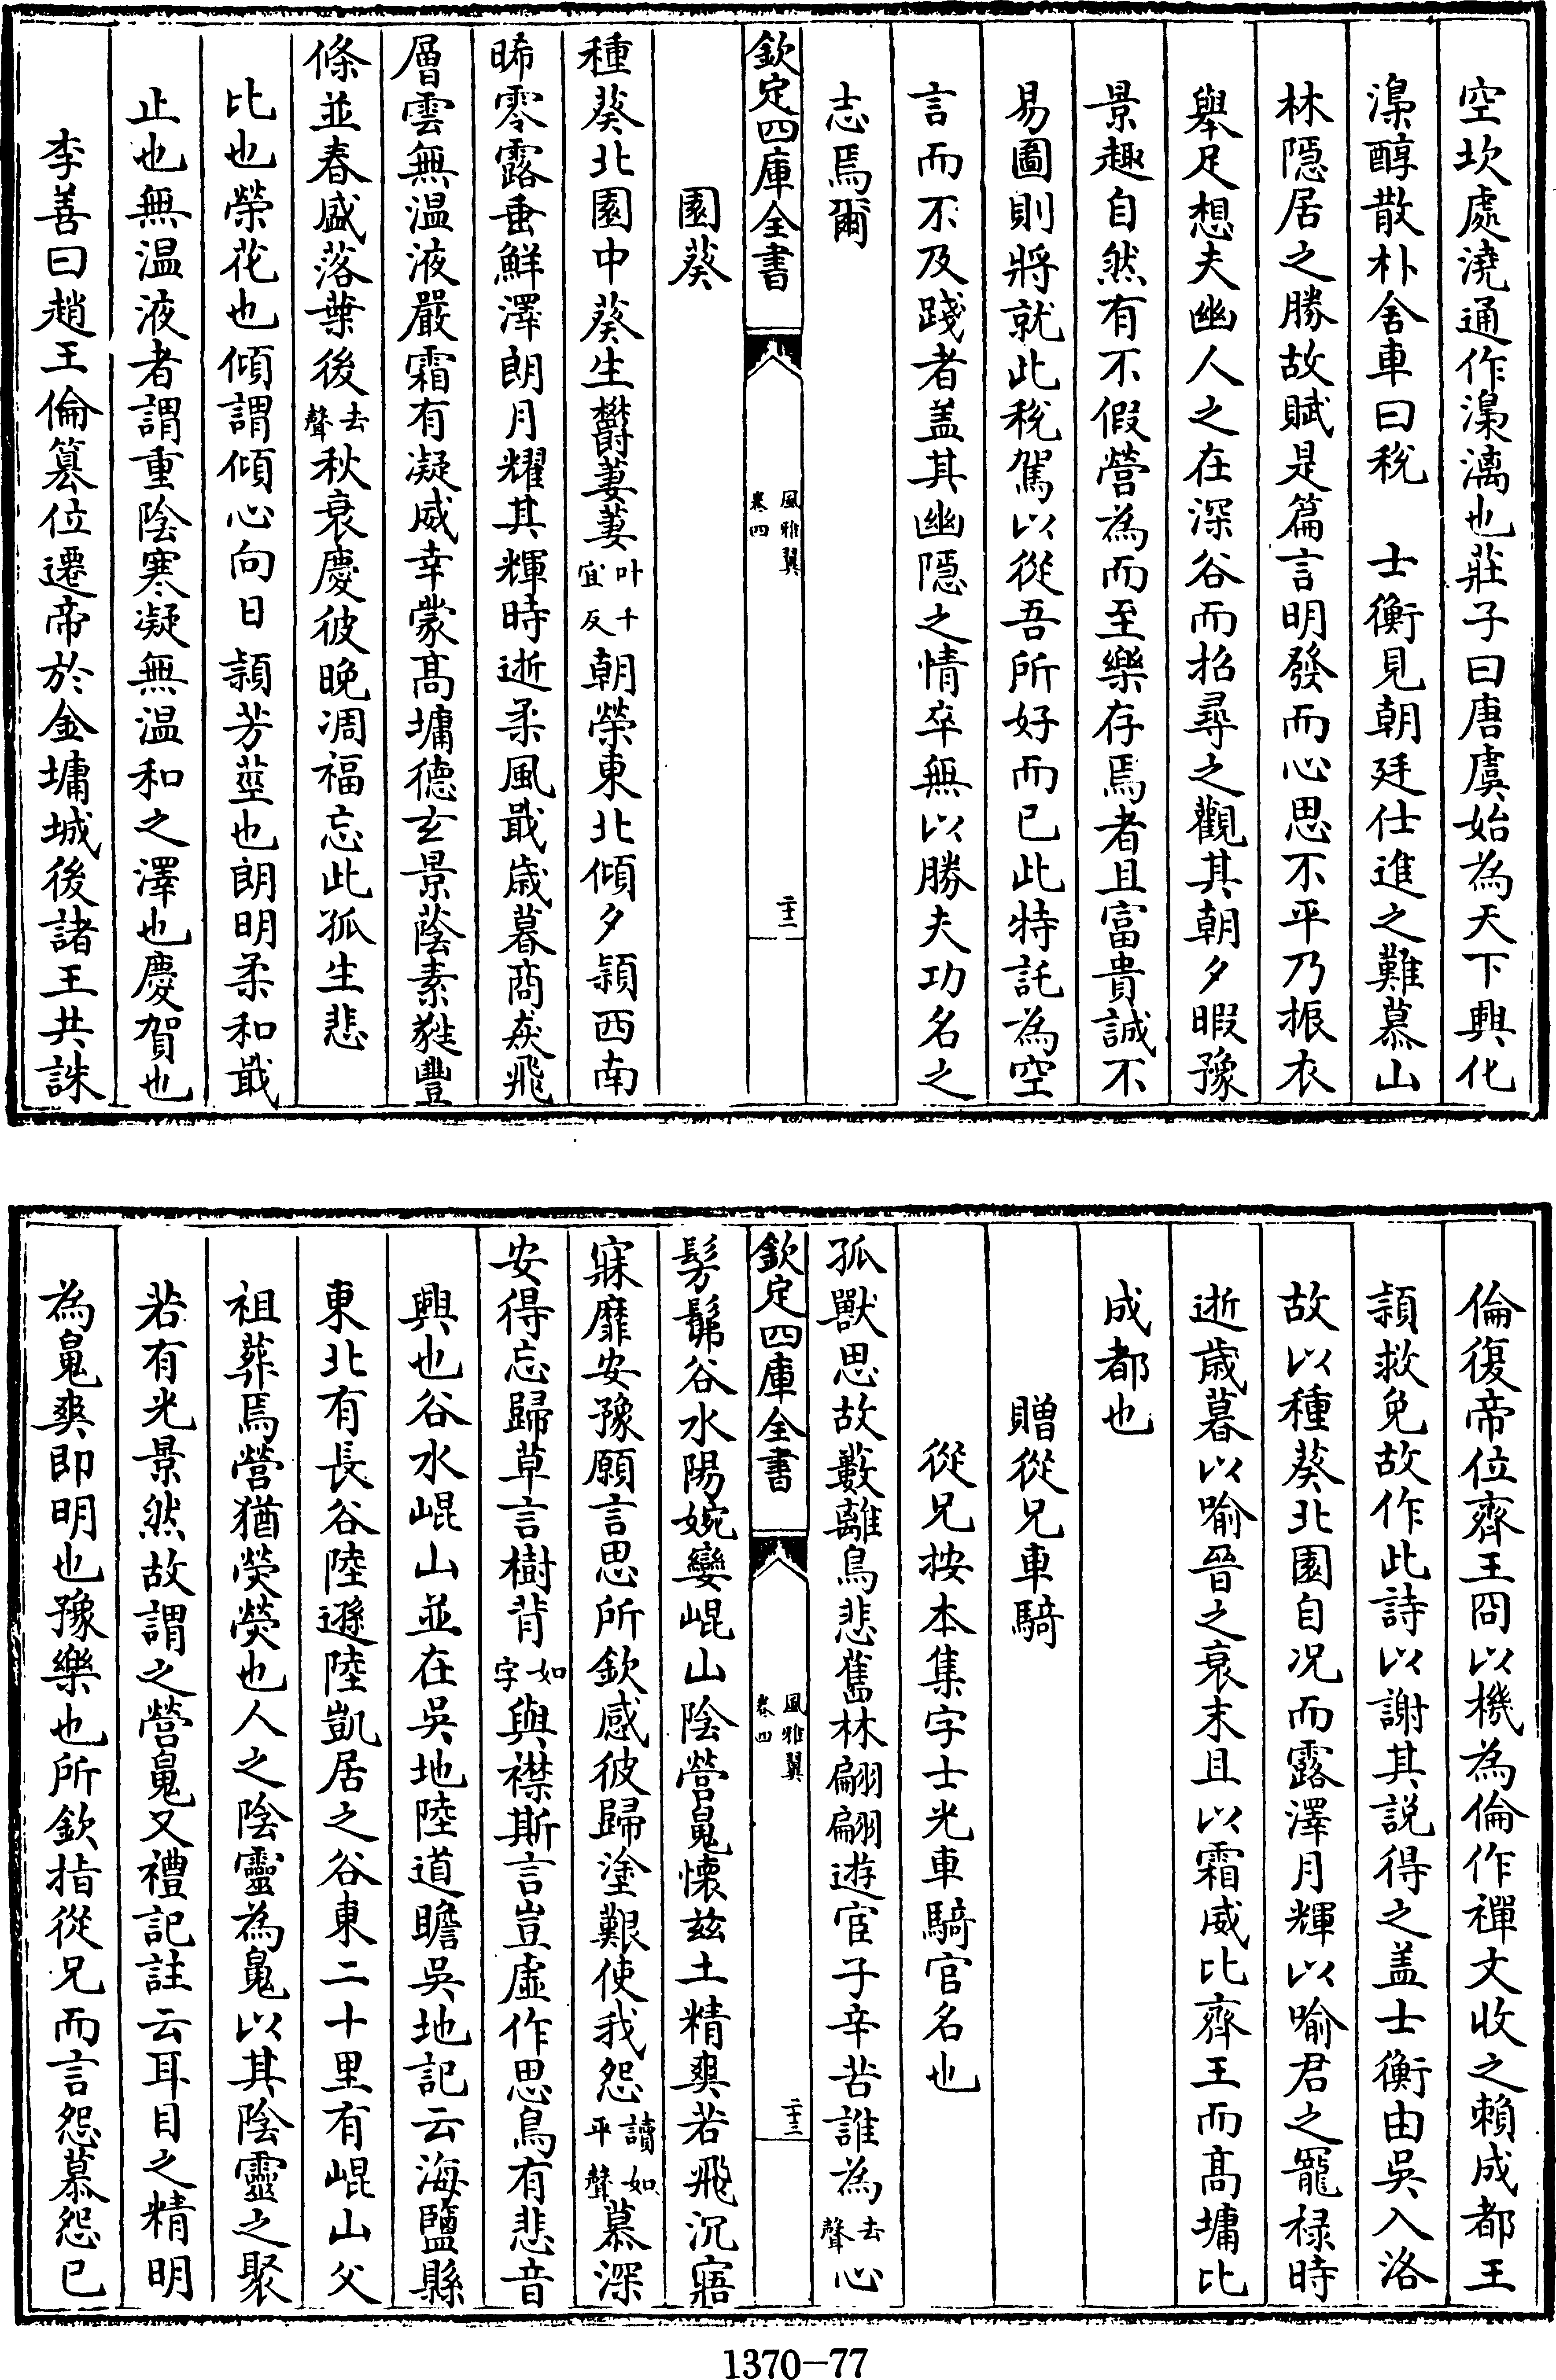 空坎處澆通作澡漓也莊子曰唐虞始為天下興化
澡醇散朴舍車曰稅　士衡見朝廷仕進之難慕山
林隱居之勝故賦是篇言明發而心思不平乃振衣
舉足想夫幽人之在深谷而招尋之觀其朝夕暇豫
景趣自然有不假營為而至樂存焉者且富貴誠不
易圖則將就此稅駕以從吾所好而已此特託為空
言而不及踐者盖其幽隱之情卒無以勝夫功名之
志焉爾
欽定四庫全書
風雅翼
卷四
二十二
園葵
種葵北園中葵生鬱萋萋叶千宜反朝榮東北傾夕穎西南
晞零露垂鮮澤朗月耀其輝時逝柔風戢歲暮商猋飛
層雲無温液嚴霜有凝威幸蒙髙墉德玄景蔭素蕤豐
條並春盛落葉後去聲秋衰慶彼晚凋福忘此孤生悲
比也榮花也傾謂傾心向日穎芳莖也朗明柔和戢
止也無温液者謂重陰寒凝無温和之澤也慶賀也
李善曰趙王倫篡位遷帝於金墉城後諸王共誅
倫復帝位齊王冏以機為倫作禪文收之賴成都王
穎救免故作此詩以謝其説得之盖士衡由吳入洛
故以種葵北園自况而露澤月輝以喻君之寵禄時
逝歲暮以喻晉之衰末且以霜威比齊王而髙墉比
成都也
贈從兄車騎
從兄按本集字士光車騎官名也
孤獸思故藪離鳥悲舊林翩翩遊宦子辛苦誰為去聲心
欽定四庫全書
風雅翼
卷四
二十三
髣髴谷水陽婉孌崐山陰營鬼懷兹土精爽若飛沉寤
寐靡安豫願言思所欽感彼歸塗艱使我怨讀如平聲慕深
安得忘歸草言樹背如字與襟斯言豈虛作思鳥有悲音
興也谷水崐山並在吳地陸道瞻吳地記云海鹽縣
東北有長谷陸遜陸凱居之谷東二十里有崐山父
祖葬焉營猶熒熒也人之陰靈為鬼以其陰靈之聚
若有光景然故謂之營鬼又禮記註云耳目之精明
為鬼爽即明也豫樂也所欽指從兄而言怨慕怨已
1370-77